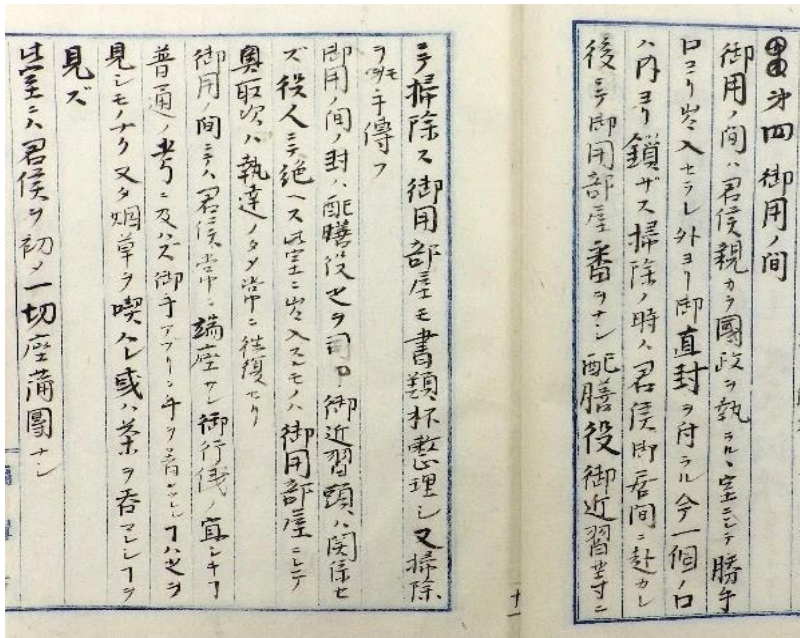 第四 御用ノ間
御用ノ間ハ君侯親カラ國政ヲ執ラルヽ室ニシテ勝手
口ヨリ出入セラレ外ヨリ御直封ヲ付ラル今一個ノ口
ハ内ヨリ鎖ザス掃除ノ時ハ君侯御居間ニ赴カレ
後ニテ御用部屋番ヲナシ配膳役御近習等ニ
ニテ掃除ス御用部屋モ書類杯整理シ又掃除
ヲモ手傳フ
御用ノ間ノ封ハ配膳役之ヲ司リ御近習頭ハ関係セ
ズ役人ニテ絶ヘス此室ニ出入スルモノハ御用部屋ニシテ
奥取次ハ執達ノタメ常ニ往復セリ
御用ノ間ニテハ君侯常ニ端座サレ御行儀ノ宜シキ
普通ノ考ニ及ハズ御手アブリニ手ヲ
見シモノナク又タ烟草ヲ喫ケレ或ハ茶ヲ呑マレシヿヲ
見ズ
此室ニハ君侯ヲ初メ一切座蒲團ナシ
十一